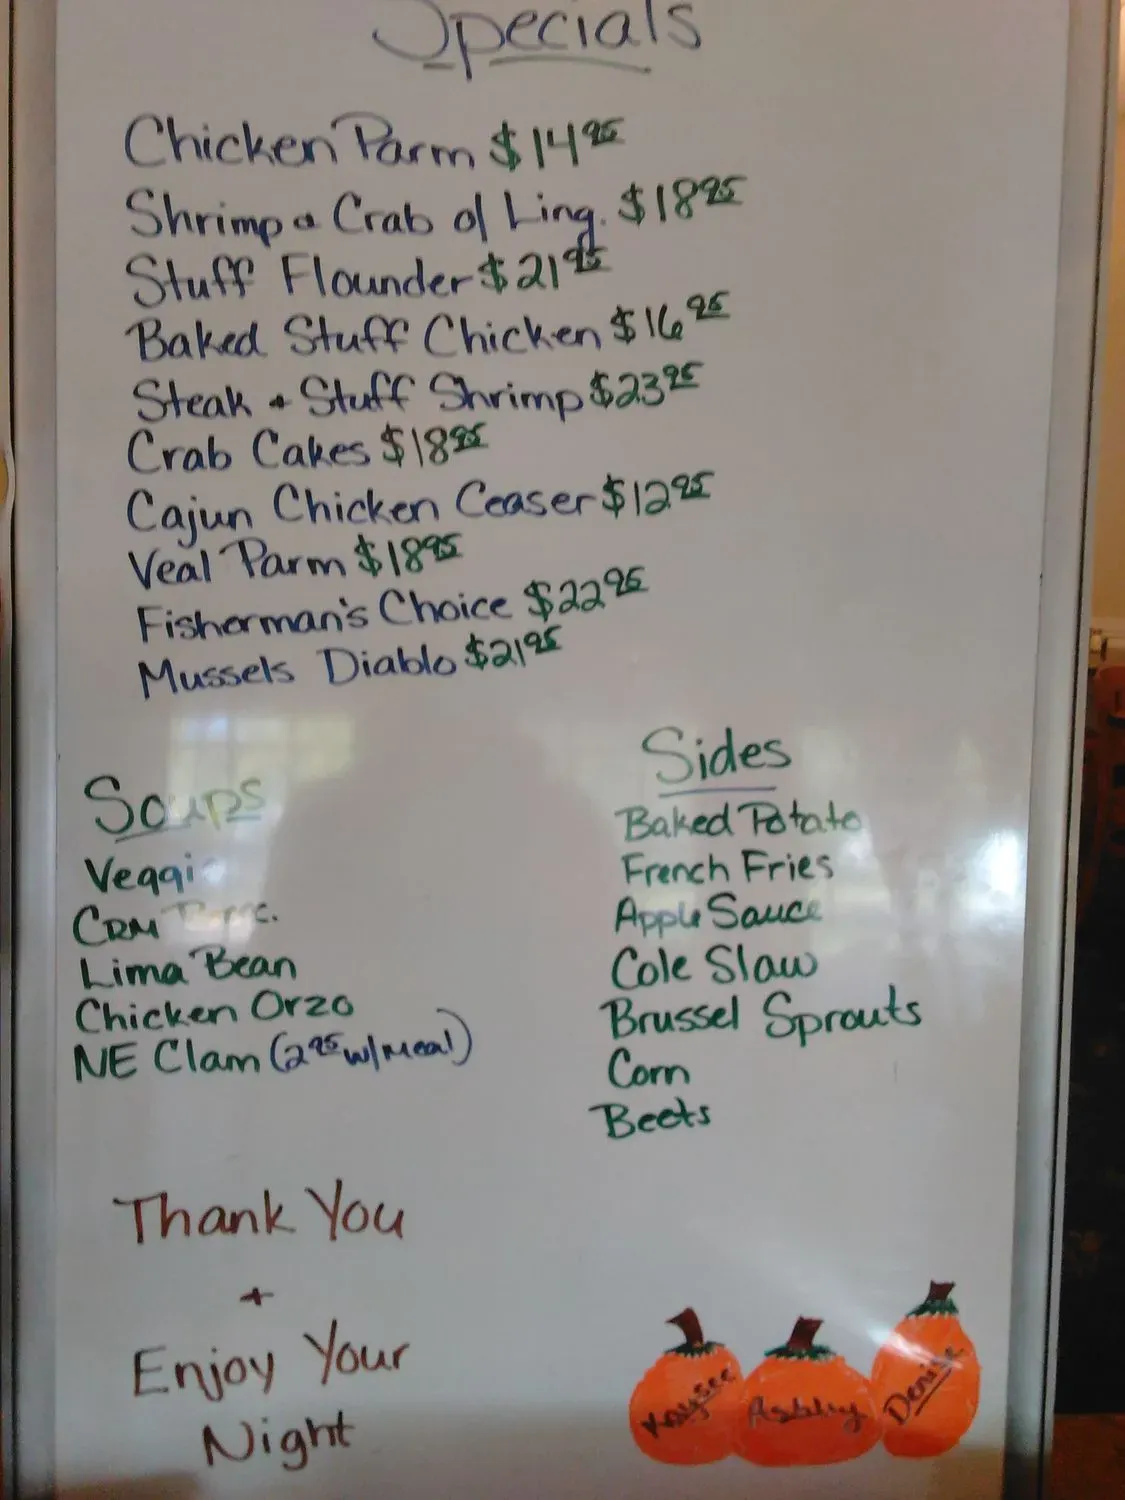 Specials
Chicken Parm $14.95
Shrimp & Crab o/ Ling. $18.95
Stuff Flounder $21.95
Baked Stuff Chicken $16.95
Steak + Stuff Shrimp $23.95
Crab Cakes $18.95
Cajun Chicken Ceaser $12.95
Veal Parm $18.95
Fisherman's Choice $22.95
Mussels Diablo $21.95
Soups
Veggie
CRM
Lima Bean
Chicken Orzo
NE Clam (2.95 w/ Meal)
Sides
Baked Potato
French Fries
Apple Sauce
Cole Slaw
Brussel Sprouts
Corn
Beets
Thank You
+
Enjoy Your
Night
Kaysee
Ashley
Denise